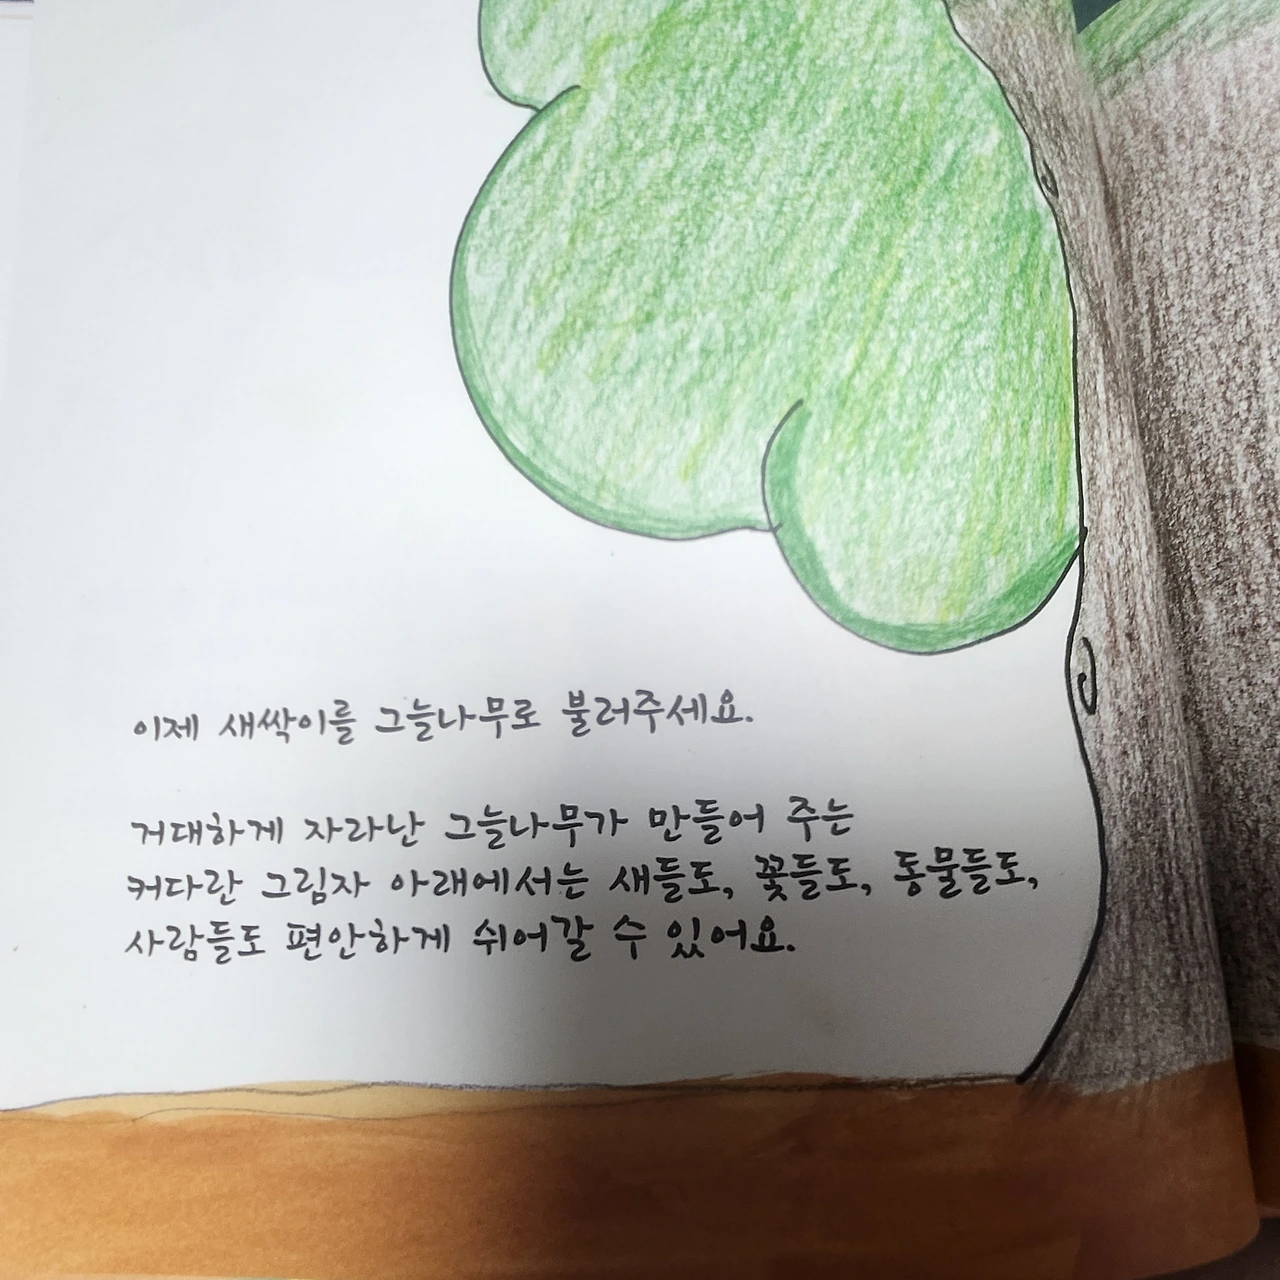 이제 새싹이를 그늘나무로 불러주세요.
거대하게 자라난 그늘나무가 만들어 주는
커다란 그림자 아래에서는 새들도, 꽃들도, 동물들도,
사람들도 편안하게 쉬어갈 수 있어요.